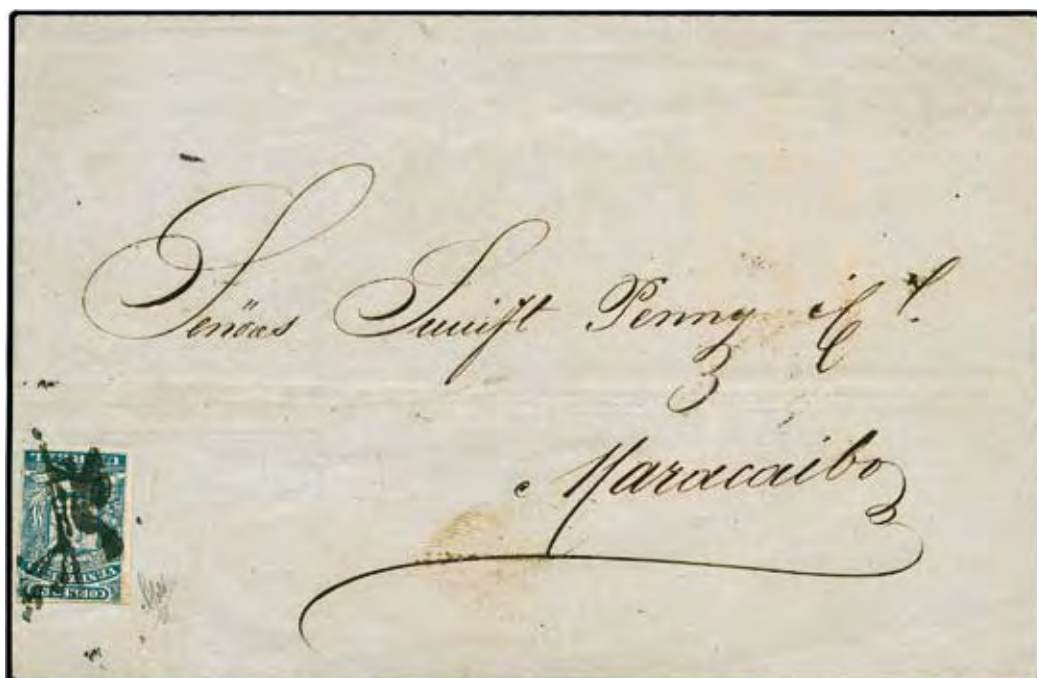 Señores Swift Penny i Cª
Maracaibo